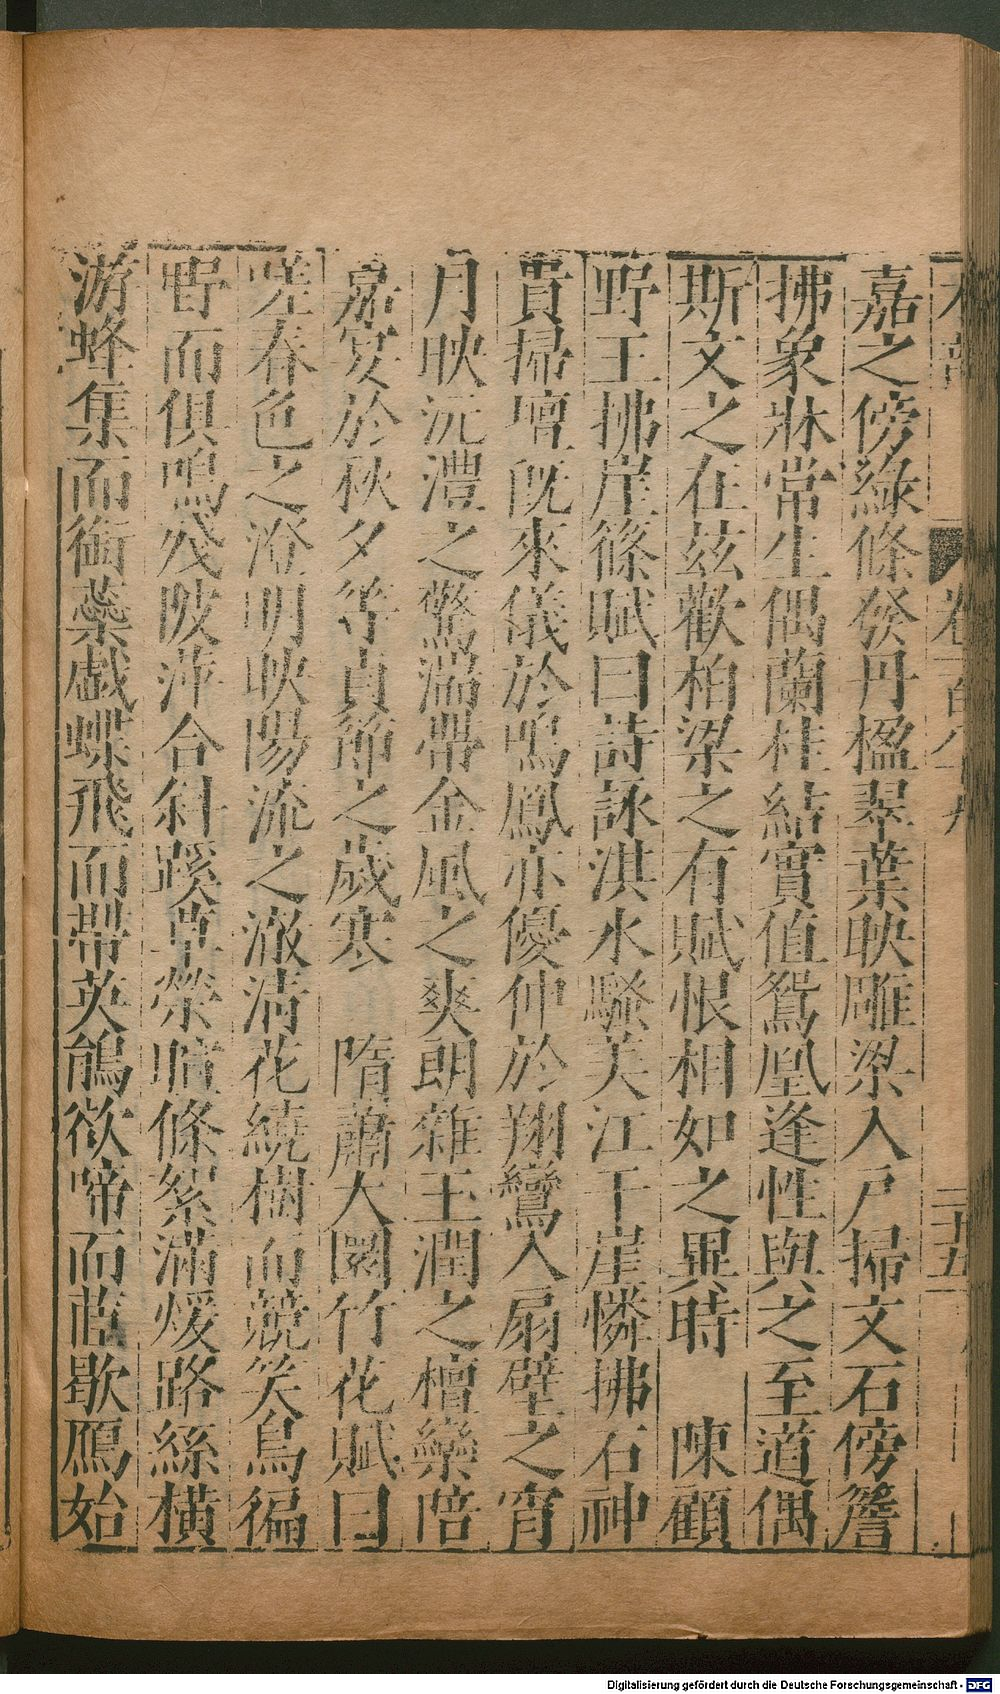 木部 卷一百八十九 二十五
嘉之傍綠條發丹楹翠葉映雕梁入戶掃文石傍簷
拂象牀常生偶蘭桂結實值鴛凰逢性與之至道偶
斯文之在茲歡柏梁之有賦恨相如之異時 陳顧
野王拂崖篠賦曰詩詠淇水騷美江干崖憐拂石神
貴掃壇既來儀於鳴鳳亦優仲於翔鸞入扇壁之宵
月映沅澧之驚湍帶金風之爽朗雜玉潤之檀欒陪
嘉宴於秋夕等貞節之歲寒 隋蕭大圜竹花賦曰
嗟春色之澄明映陽流之澂清花繞樹而競笑鳥徧
野而俱鳴殘陂萍合斜蹊草縈暄條絮滿煖路絲橫
游蜂集而銜蘂戲蝶飛而帶英鶬欲啼而藍歇鴈始
Digitalisierung gefördert durch die Deutsche Forschungsgemeinschaft - DFG